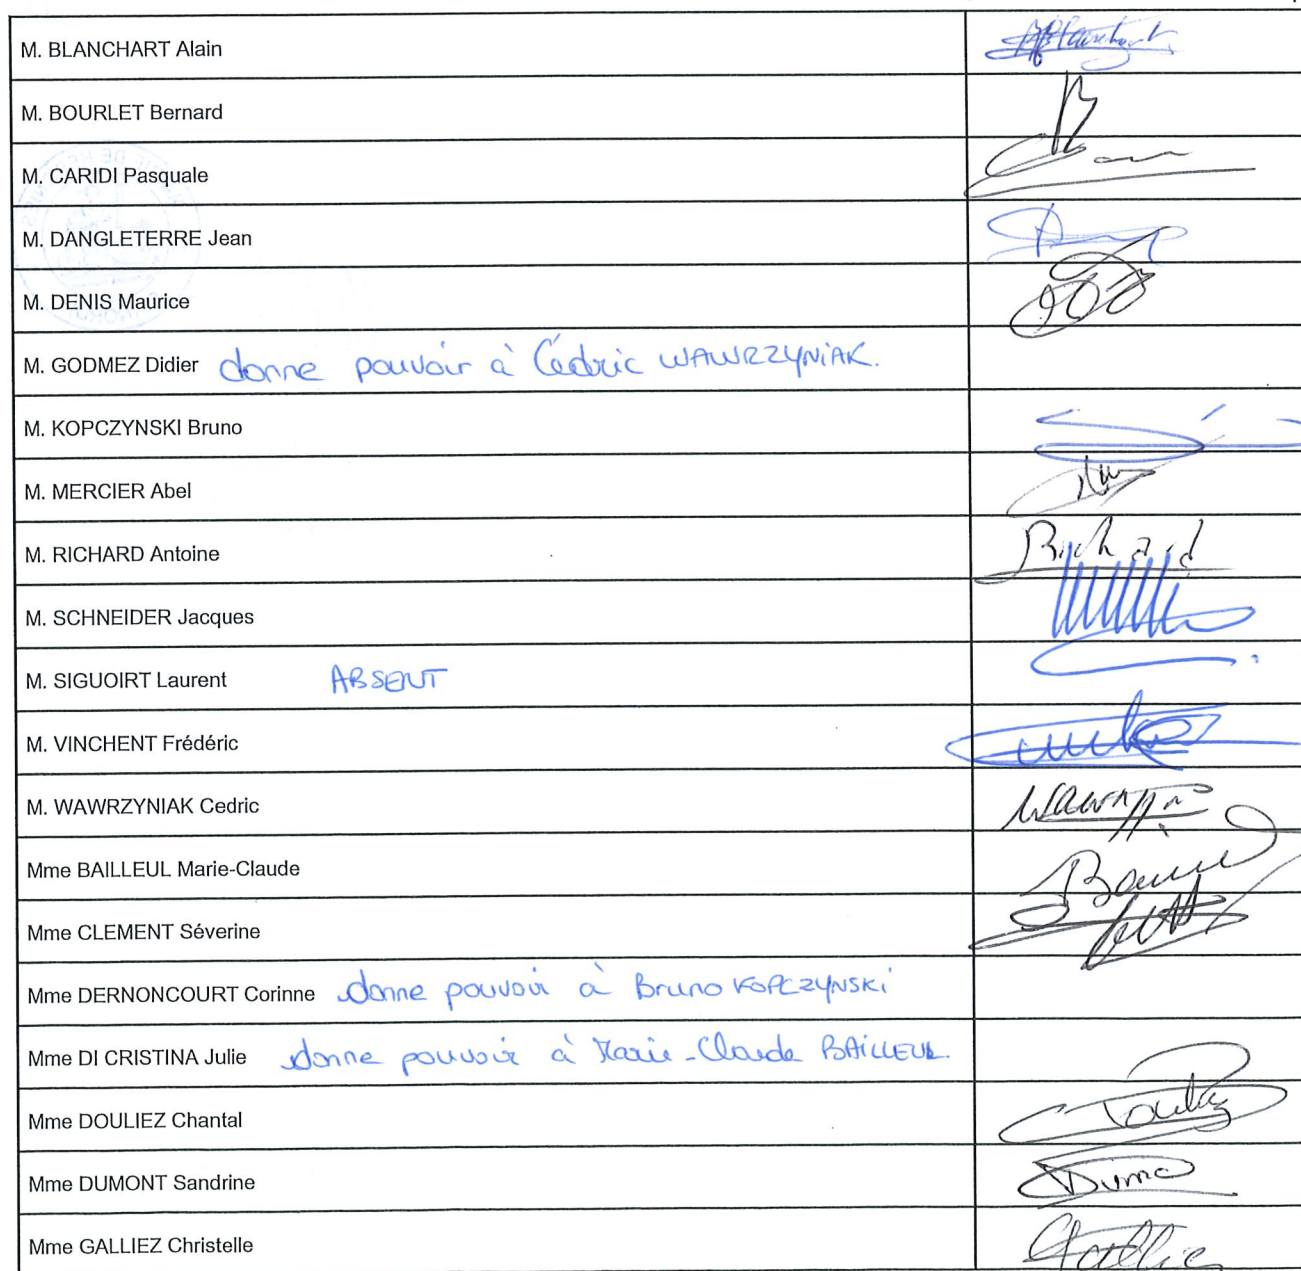 M. BLANCHART Alain
M. BOURLET Bernard
M. CARIDI Pasquale
M. DANGLETERRE Jean
M. DENIS Maurice
M. GODMEZ Didier donne pouvoir à Cédric WAWRZYNIAK.
M. KOPCZYNSKI Bruno
M. MERCIER Abel
M. RICHARD Antoine Richard
M. SCHNEIDER Jacques
M. SIGUOIRT Laurent ABSENT
M. VINCHENT Frédéric
M. WAWRZYNIAK Cedric
Mme BAILLEUL Marie-Claude
Mme CLEMENT Séverine
Mme DERNONCOURT Corinne donne pouvoir à Bruno KOPCZYNSKI
Mme DI CRISTINA Julie donne pouvoir à Marie-Claude BAILLEUL.
Mme DOULIEZ Chantal
Mme DUMONT Sandrine
Mme GALLIEZ Christelle